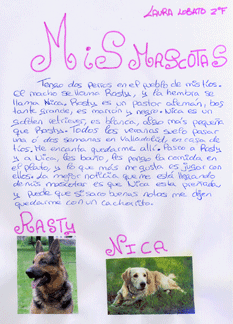 LAURA LOBATO 2ºF
MIS MASCOTAS
Tengo dos perros en el pueblo de mis tíos.
El macho se llama Rasty, y la hembra se
llama Nica. Rasty es un pastor alemán, bas
tante grande, es marrón y negro. Nica es un
setter retriever, es blanca, algo más pequeña
que Rasty. Todos los veranos suelo pasar
una ó dos semanas en Valladolid, en casa de
tíos. Me encanta quedarme allí. Paseo a Rasty
y a Nica, les baño, les pongo la comida en
el plato, y lo que más me gusta es jugar con
ellos. La mejor noticia que me está llegando
de mis mascotas es que Nica está preñada
y puede que si saco buenas notas me dejen
quedarme con un cachorrito.
RASTY
NICA